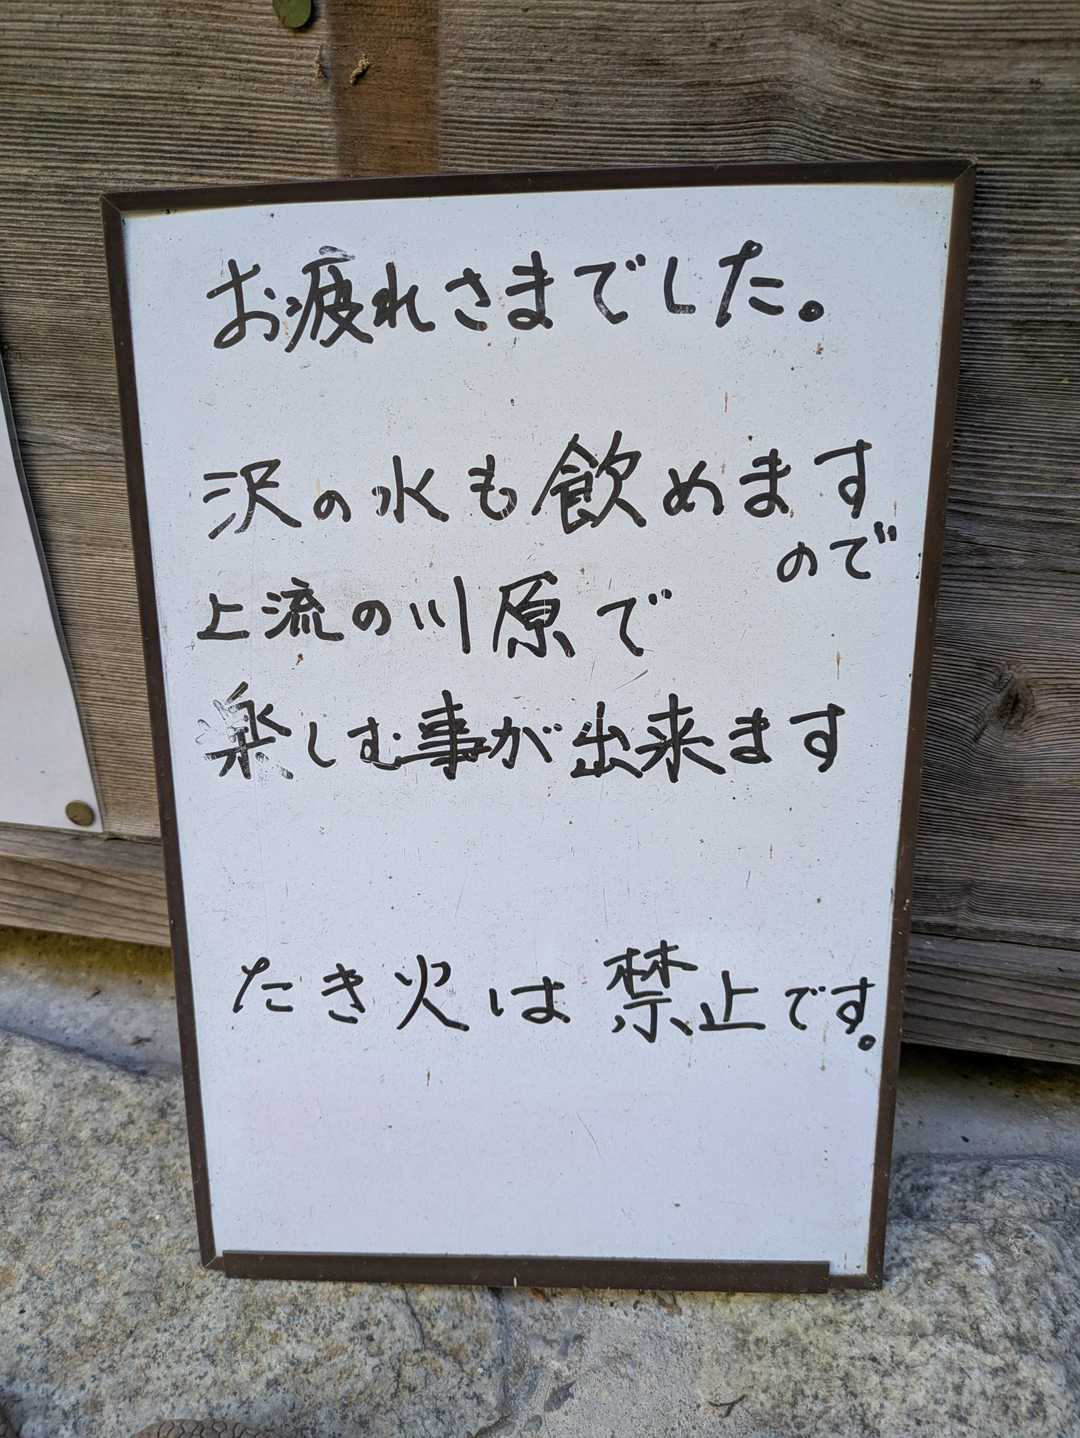 お疲れさまでした。
沢の水も飲めます
ので
上流の川原で
楽しむ事が出来ます
たき火は禁止です。